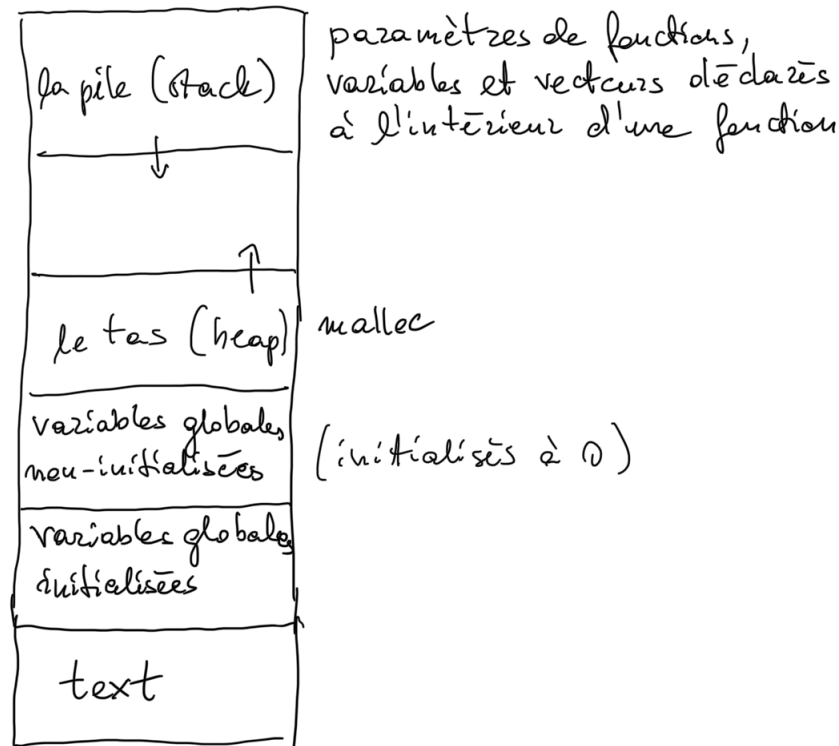 la pile (stack)
paramètres de fonctions,
variables et vecteurs déclarés
à l'intérieur d'une fonction
le tas (heap)
malloc
variables globales
non-initialisées
(initialisés à 0)
variables globales
initialisées
text